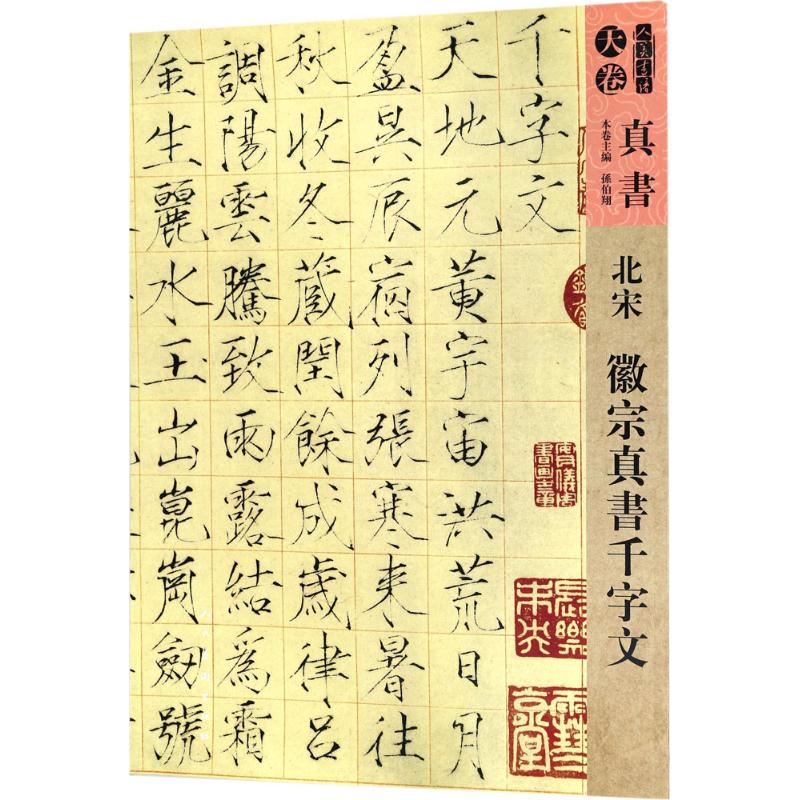 人美書譜
天卷
真書
本卷主編 孫伯翔
北宋
徽宗真書千字文
千字文
天地元黄宇宙洪荒日月
盈昃辰宿列張寒来暑往
秋收冬蔵閏餘成歳律吕
調陽雲騰致雨露結為霜
金生麗水玉出崑崗劒號